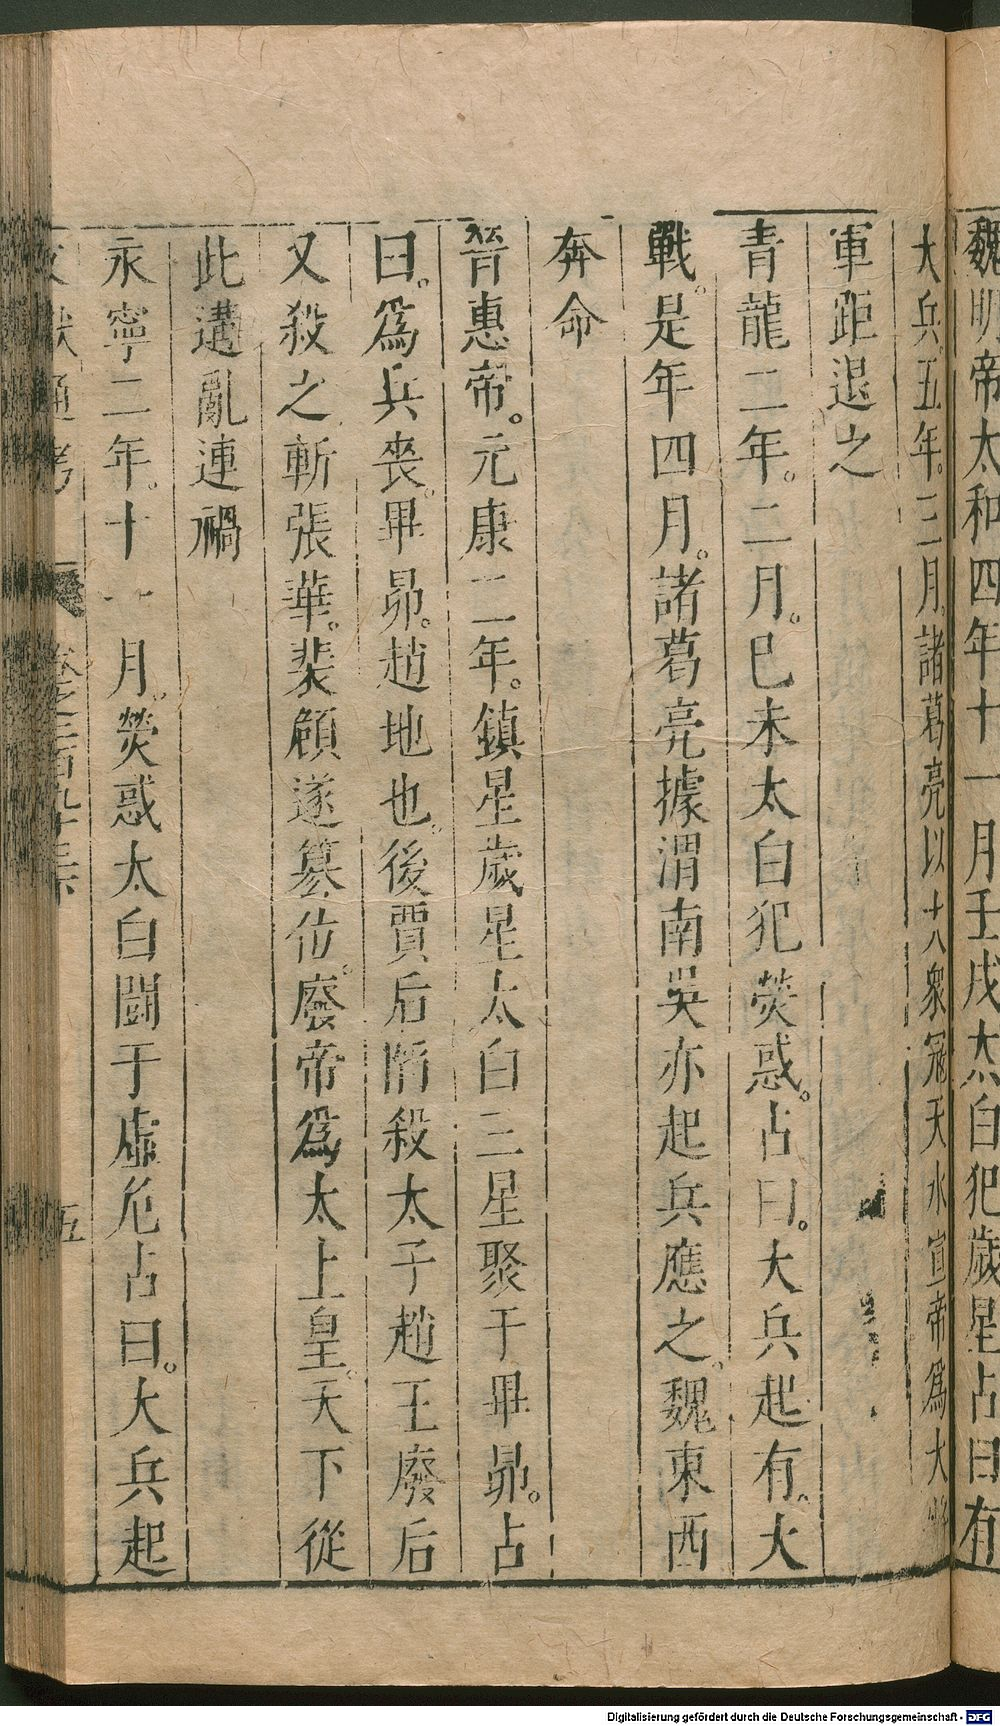 魏明帝太和四年十一月壬戌太白犯歲星占曰有
大兵五年三月諸葛亮以大衆冦天水宣帝爲大將
軍距退之
青龍二年。二月。巳未太白犯熒惑。占曰。大兵起有。大
戰。是年四月。諸葛亮據渭南吳亦起兵應之。魏東西
奔命
晉惠帝。元康二年。鎮星歲星太白三星聚于畢昴。占
曰。爲兵喪。畢昴。趙地也。後賈后䧟殺太子趙王廢后
又殺之斬張華。裴頠遂簒位。廢帝爲太上皇。天下從
此遘亂連禍
永寧二年。十一月。熒惑太白鬭于虛危占曰。大兵起
文獻通考 卷之二百九十三 五
Digitalisierung gefördert durch die Deutsche Forschungsgemeinschaft - DFG